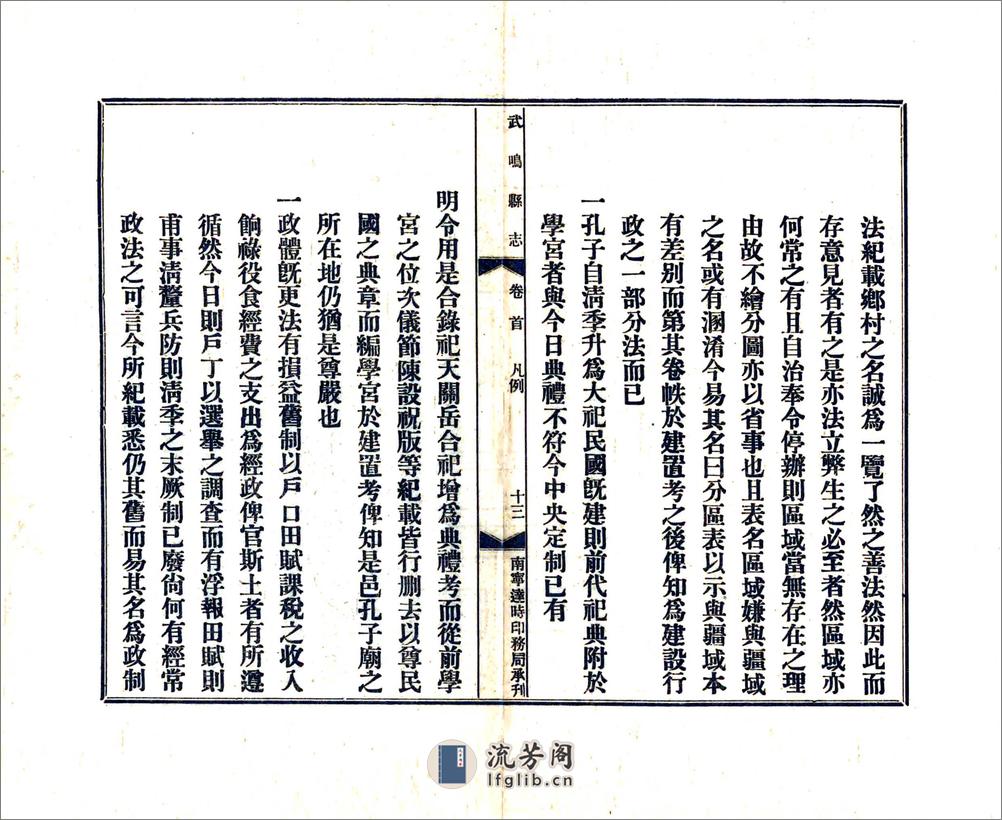 法紀載鄉村之名誠爲一覽了然之善法然因此而
存意見者有之是亦法立弊生之必至者然區域亦
何常之有且自治奉令停辦則區域當無存在之理
由故不繪分圖亦以省事也且表名區域嫌與疆域
之名或有溷淆今易其名曰分區表以示與疆域本
有差别而第其卷帙於建置考之後俾知爲建設行
政之一部分法而已
一孔子自淸季升爲大祀民國旣建則前代祀典附於
學宮者與今日典禮不符今中央定制已有
武鳴縣志
卷首
凡例
十三
南寧達時印務局承刋
明令用是合錄祀天關岳合祀增爲典禮考而從前學
宮之位次儀節陳設祝版等紀載皆行删去以尊民
國之典章而編學宮於建置考俾知是邑孔子廟之
所在地仍猶是尊嚴也
一政體旣更法有損益舊制以戶口田賦課稅之收入
餉祿役食經費之支出爲經政俾官斯土者有所遵
循然今日則戶丁以選舉之調查而有浮報田賦則
甫事淸釐兵防則淸季之末厥制已廢尙何有經常
政法之可言今所紀載悉仍其舊而易其名爲政制
流芳阁
lfglib.cn